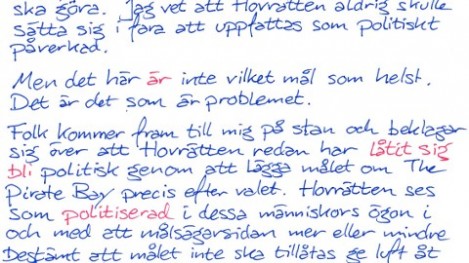 ska göra. Jag vet att Hovrätten aldrig skulle
sätta sig i fara att uppfattas som politiskt
påverkad.
Men det här är inte vilket mål som helst.
Det är det som är problemet.
Folk kommer fram till mig på stan och beklagar
sig över att Hovrätten redan har låtit sig
bli politisk genom att lägga målet om The
Pirate Bay precis efter valet. Hovrätten ses
som politiserad i dessa människors ögon i
och med att målsägarsidan mer eller mindre
bestämt att målet inte ska tillåtas ge luft åt